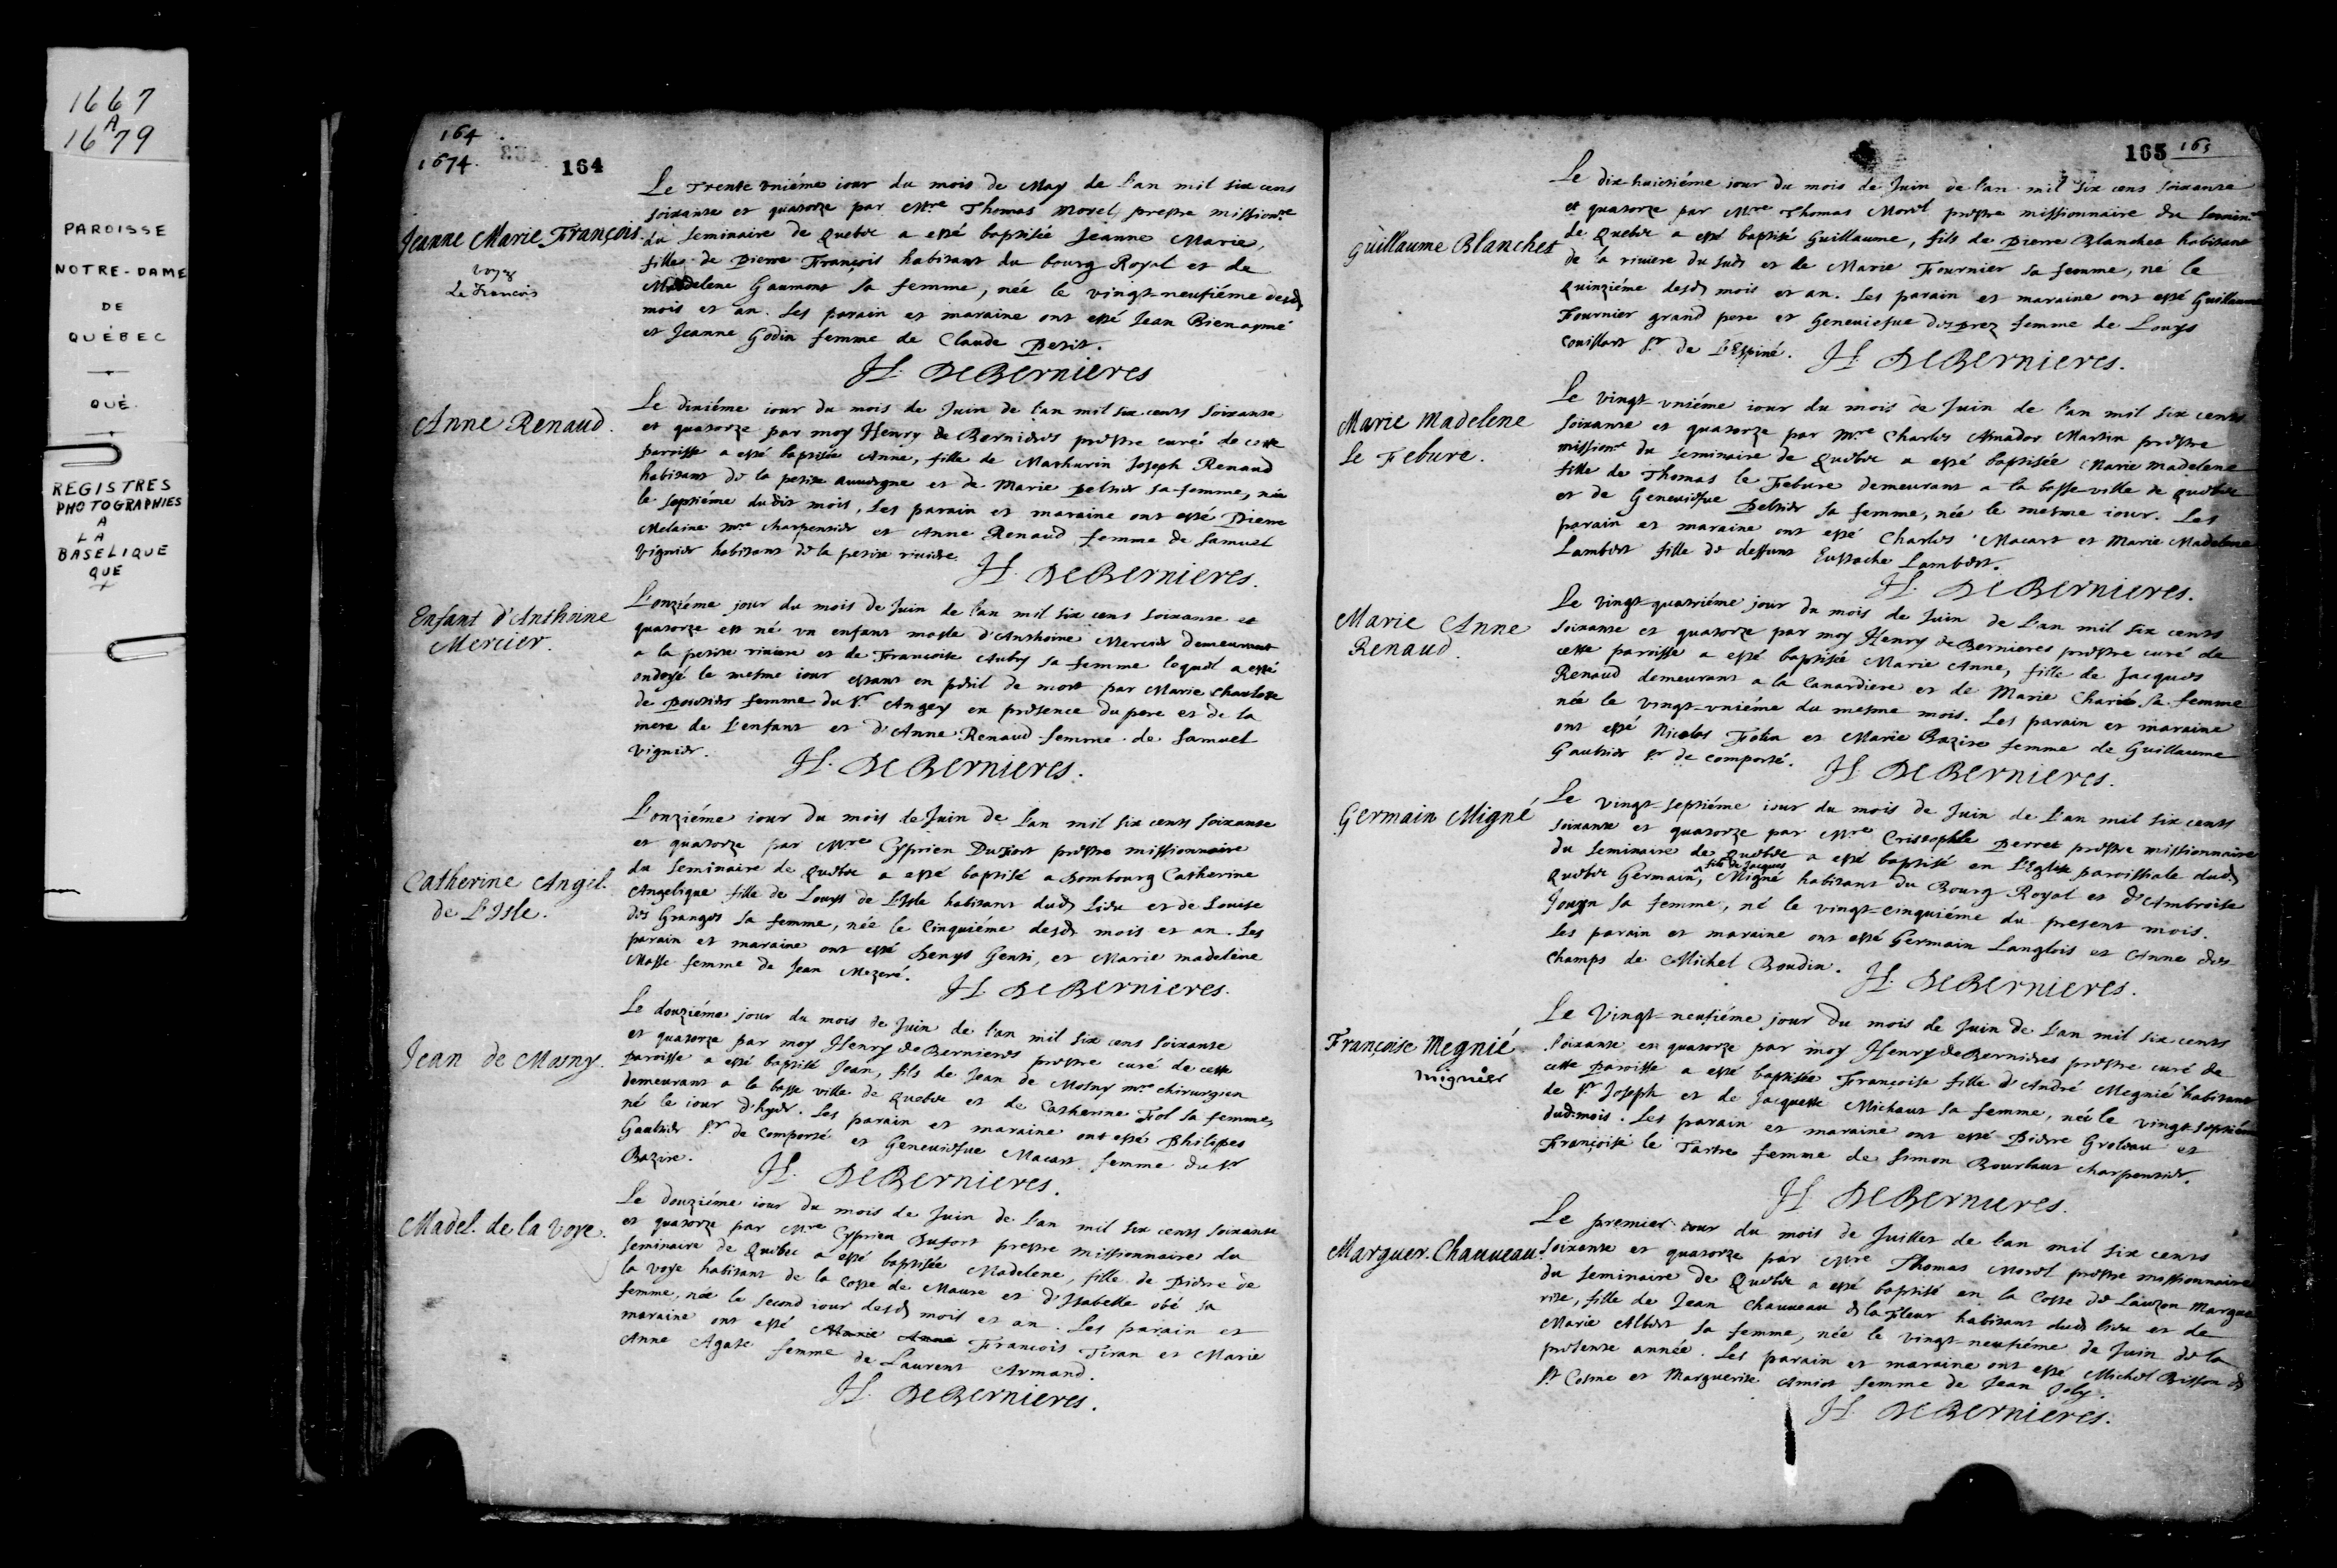 1667
A
1679
PAROISSE
NOTRE-DAME
DE
QUÉBEC
QUÉ.
REGISTRES
PHOTOGRAPHIES
A
LA
BASELIQUE
QUE
164
1674.
164
Jeanne Marie François.
voyez
Le François
Le Trente vniéme iour du mois de May de l'an mil six cens
soixante et quatorze par Mre Thomas Morel prestre missionre
du Seminaire de Quebec a esté baptisée Jeanne Marie,
fille de Pierre François habitant du bourg Royal et de
Madelene Gaumont sa femme, née le vingt-neufiéme desd
mois et an. Les parain et maraine ont esté Jean Bienaymé
et Jeanne Godin femme de Claude Petit.
H. DeBernieres
Anne Renaud.
Le dixiéme iour du mois de Juin de l'an mil six cents soixante
et quatorze par moy Henry de Bernieres prestre curé de cette
paroisse a esté baptisée Anne, fille de Mathurin Joseph Renaud
habitant de la petite auuergne et de Marie Peltier sa femme, née
le septiéme dudit mois. Les parain et maraine ont esté Pierre
Melaine mre charpentier et Anne Renaud femme de Samuel
Vignier habitant de la petite riuiere.
H. DeBernieres.
Enfant d'Anthoine
Mercier.
L'onziéme jour du mois de Juin de l'an mil six cens soixante et
quatorze est né vn enfant masle d'Anthoine Mercier demeurant
a la petite riuiere et de Françoise Aubry sa femme lequel a esté
ondoyé le mesme iour estant en péril de mort par Marie Charlotte
de Poitiers femme du Sr Angey en présence du pere et de la
mere de l'enfant et d'Anne Renaud femme de Samuel
Vignier.
H. DeBernieres.
Catherine Angel.
de L'Isle.
L'onziéme iour du mois de Juin de l'an mil six cents soixante
et quatorze par Mre Cyprien Dufort prestre missionnaire
du Seminaire de Quebec a esté baptisé a Dombourg Catherine
Angelique fille de Louys de L'Isle habitant dud lieu et de Louise
des Granges sa femme, née le Cinquiéme desd mois et an. Les
parain et maraine ont esté Denys Genti, et Marie madelène
Masse femme de Jean Mezeré.
H. DeBernieres.
Jean de Mosny.
Le douziéme jour du mois de Juin de l'an mil six cens soixante
et quatorze par moy Henry de Bernieres prestre curé de cette
paroisse a esté baptisé Jean, fils de Jean de Mosny mre chirurgien
demeurant a la basse ville de Quebec et de Catherine Fol sa femme,
né le iour d'hyer. Les parain et maraine ont esté Philippes
Gaultier Sr de Comporté et Geneuiefue Macart femme du Sr
Bazire.
H. DeBernieres.
Madel. de la Voye.
Le douziéme iour du mois de Juin de l'an mil six cents soixante
et quatorze par Mre Cyprien Dufort prestre missionnaire du
Seminaire de Quebec a esté baptisée Madelene, fille de Pierre de
la Voye habitant de la coste de Maure et d'Isabelle obé sa
femme, née le second iour desd mois et an. Les parain et
maraine ont esté Marie Anne François Tiran et Marie
Anne Agate femme de Laurent Armand.
H. DeBernieres.
165 165
Guillaume Blanchet
Le dix-huictiéme iour du mois de Juin de l'an mil six cens soixante
et quatorze par Mre Thomas Morel prestre missionnaire du Semine
de Quebec a esté baptisé Guillaume, fils de Pierre Blanchet habitant
de la riuiere du Sud et de Marie Fournier sa femme, né le
quinziéme desd mois et an. Les parain et maraine ont esté Guillaume
Fournier grand pere et Geneuiefue desprez femme de Louys
Couillart Sr de L'Espiné.
H. DeBernieres.
Marie Madelene
Le Febure.
Le vingt-vniéme iour du mois de Juin de l'an mil six cents
soixante et quatorze par Mre Charles Amador Martin prestre
missionre du Seminaire de Quebec a esté baptisée Marie madelene
fille de Thomas le Febure demeurant a la basse-ville de Quebec
et de Geneuiefue Peltier sa femme, née le mesme iour. Les
parain et maraine ont esté Charles Macart et Marie Madelene
Lambert fille de deffunt Eustache Lambert.
H. DeBernieres.
Marie Anne
Renaud.
Le vingt-quatriéme jour du mois de Juin de l'an mil six cents
soixante et quatorze par moy Henry de Bernieres prestre curé de
cette paroisse a esté baptisée Marie Anne, fille de Jacques
Renaud demeurant a la Canardiere et de Marie Charié sa femme
née le vingt-vniéme du mesme mois. Les parain et maraine
ont esté Nicolas Folin et Marie Bazire femme de Guillaume
Gaultier Sr de comporté.
H. DeBernieres.
Germain Migné
Le vingt-septiéme iour du mois de Juin de l'an mil six cents
soixante et quatorze par Mre Cristophle Perret prestre missionnaire
du Seminaire de Quebec a esté baptisé en l'Eglise paroissiale dud
Quebec Germain, fils de Jacques Migné habitant du Bourg Royal et d'Ambroise
Jouyn sa femme, né le vingt-cinquiéme du present mois.
Les parain et maraine ont esté Germain Langlois et Anne des-
Champs de Michel Boudin.
H. DeBernieres.
Françoise Megnié
mignier
Le Vingt-neufiéme jour du mois de Juin de l'an mil six cents
soixante en quatorze par moy Henry de Bernieres prestre curé de
cette Paroisse a esté baptisée Françoise fille d'André Megnié habitant
de St Joseph et de Jacquette Michaut sa femme, née le vingt-septiéme
dud mois. Les parain et maraine ont esté Pierre Groleau et
Françoise le Tartre femme de Simon Bourbaut charpentier.
H. DeBernieres.
Marguer. Chauueau.
Le premier iour du mois de Juillet de l'an mil six cents
soixante et quatorze par Mre Thomas Morel prestre missionnaire
du Seminaire de Quebec a esté baptisé en la Coste de Lauzon Margue
rite, fille de Jean Chauueau dt la Fleur habitant dud lieu et de
Marie Albert sa femme, née le vingt-neufiéme de Juin de la
présente année. Les parain et maraine ont esté Michel Bisson dt
St Cosme et Marguerite Amiot femme de Jean Joly.
H. DeBernieres.